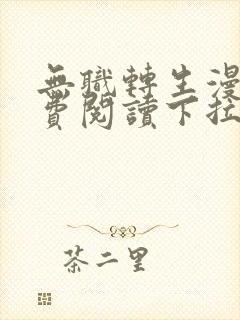 無職轉生漫
費閱讀下拉
茶二里